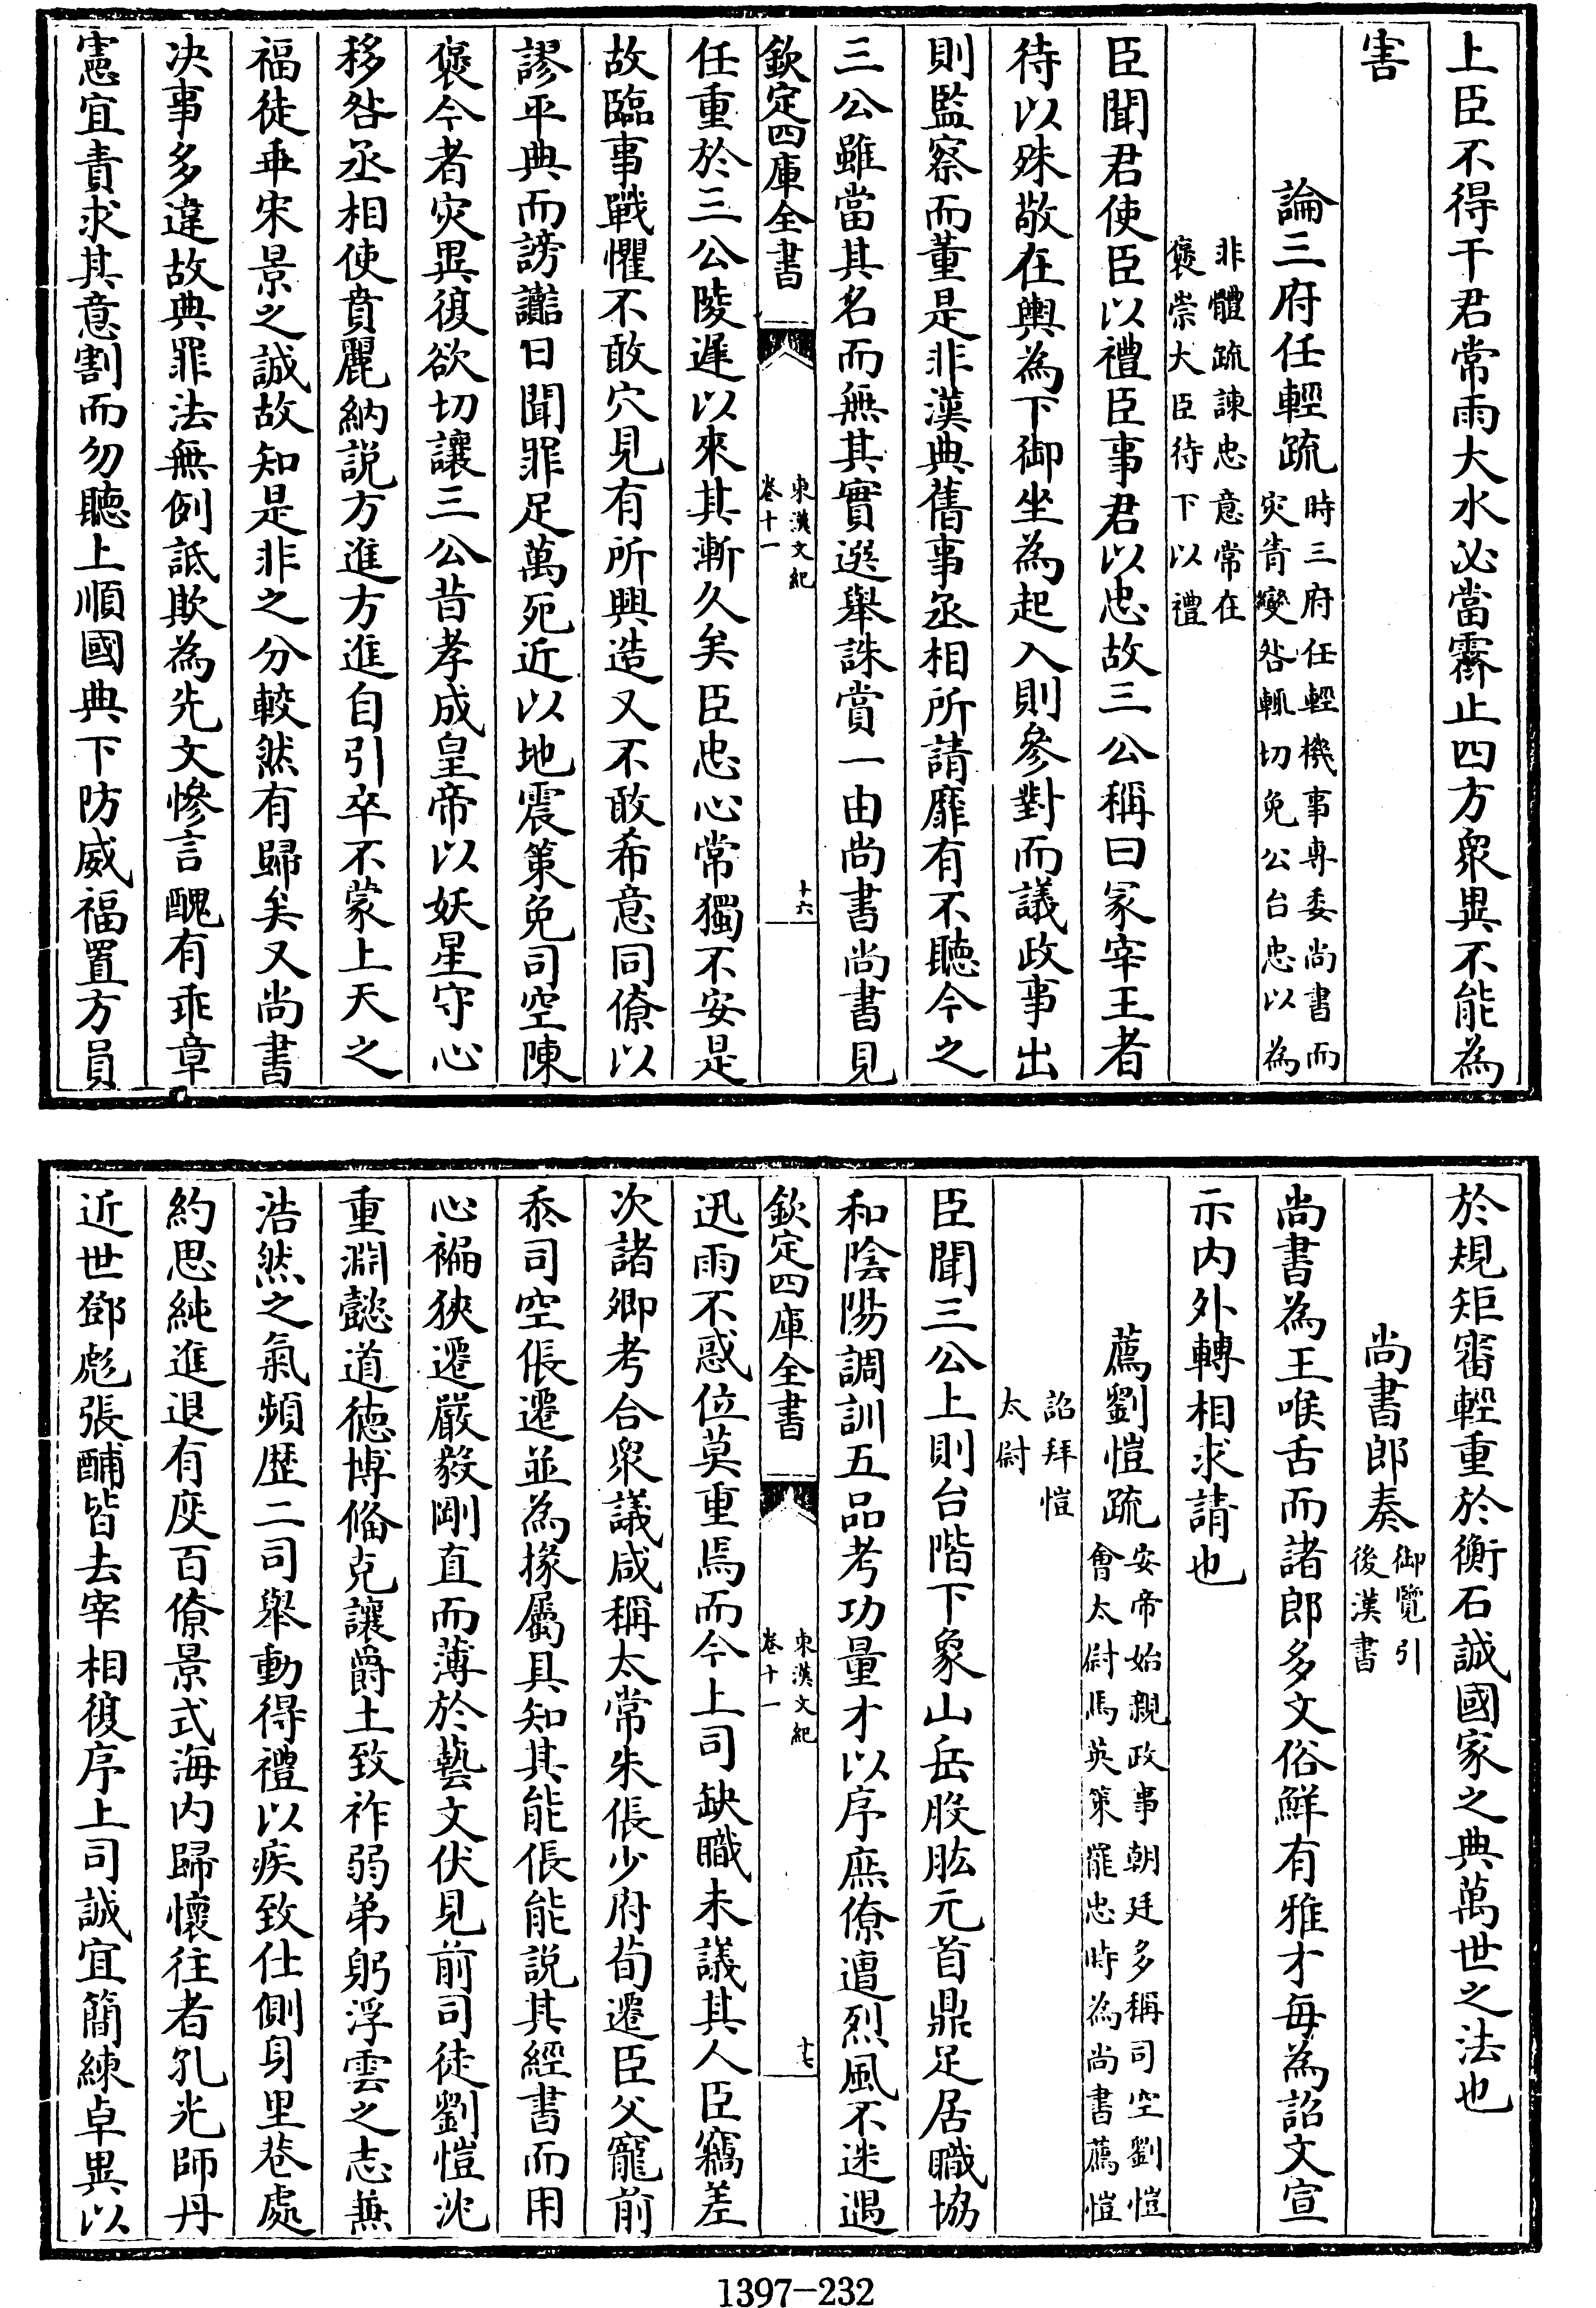 上臣不得干君常雨大水必當霽止四方衆異不能為
害
論三府任輕疏時三府任輕機事専委尚書而
災眚變咎輒切免公台忠以為
非體疏諫忠意常在
褒崇大臣待下以禮
臣聞君使臣以禮臣事君以忠故三公稱曰冢宰王者
待以殊敬在輿為下御坐為起入則參對而議政事出
則監察而董是非漢典舊事丞相所請靡有不聽今之
三公雖當其名而無其實選舉誅賞一由尚書尚書見
欽定四庫全書
東漢文紀
卷十一
十六
任重於三公陵遲以來其漸久矣臣忠心常獨不安是
故臨事戰懼不敢穴見有所興造又不敢希意同僚以
謬平典而謗讟日聞罪足萬死近以地震策免司空陳
褒今者災異復欲切讓三公昔孝成皇帝以妖星守心
移咎丞相使賁麗納説方進方進自引卒不蒙上天之
福徒乖宋景之誠故知是非之分較然有歸矣又尚書
决事多違故典罪法無例詆欺為先文慘言醜有乖章
憲宜責求其意割而勿聽上順國典下防威福置方員
於規矩審輕重於衡石誠國家之典萬世之法也
尚書郎奏御覽引
後漢書
尚書為王喉舌而諸郎多文俗鮮有雅才每為詔文宣
示内外轉相求請也
薦劉愷疏安帝始親政事朝廷多稱司空劉愷
會太尉馬英策罷忠時為尚書薦愷
詔拜愷
太尉
臣聞三公上則台階下象山岳股肱元首鼎足居職協
和陰陽調訓五品考功量才以序庶僚遭烈風不迷遇
欽定四庫全書
東漢文紀
卷十一
十七
迅雨不惑位莫重焉而今上司缺職未議其人臣竊差
次諸卿考合衆議咸稱太常朱倀少府荀遷臣父寵前
忝司空倀遷並為掾屬具知其能倀能説其經書而用
心褊狹遷嚴毅剛直而薄於藝文伏見前司徒劉愷沈
重淵懿道德博備克讓爵土致祚弱弟躬浮雲之志兼
浩然之氣頻歴二司舉動得禮以疾致仕側身里巷處
約思純進退有度百僚景式海内歸懷往者孔光師丹
近世鄧彪張酺皆去宰相復序上司誠宜簡練卓異以
1397-232